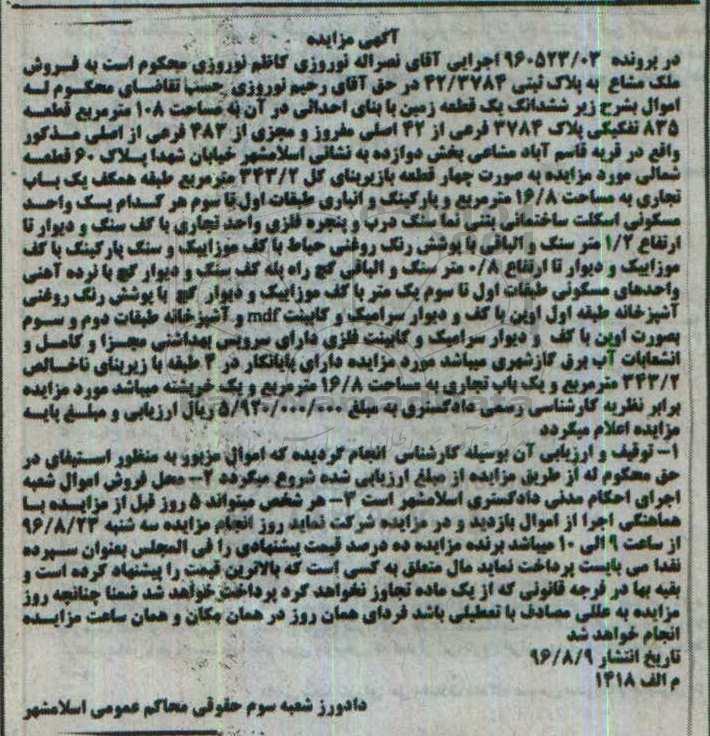 آگهی مزایده
در پرونده ۹۶۰۵۲۳/۰۳ اجرایی آقای نصراله نوروزی کاظم نوروزی محکوم است به فروش
ملک مشاع به پلاک ثبتی ۴۲/۳۷۸۴ در حق آقای رحیم نوروزی حسب تقاضای محکوم له
اموال بشرح زیر ششدانگ یک قطعه زمین با بنای احداثی در آن به مساحت ۱۰۸ مترمربع قطعه
۸۳۵ تفکیکی پلاک ۳۷۸۴ فرعی از ۴۲ اصلی مفروز و مجزی از ۴۸۳ فرعی از اصلی مذکور
واقع در قریه قاسم آباد مشاعی بخش دوازده به نشانی اسلامشهر خیابان شهدا پلاک ۶۰ قطعه
شمالی مورد مزایده به صورت چهار قطعه بازیربنای کل ۳۴۳/۲ مترمربع طبقه همکف یک باب
تجاری به مساحت ۱۶/۸ مترمربع و پارکینگ و انباری طبقات اول تا سوم هر کدام یک واحد
مسکونی اسکلت ساختمانی بتنی نما سنگ درب و پنجره فلزی واحد تجاری با کف سنگ و دیوار تا
ارتفاع ۱/۲ متر سنگ و الباقی با پوشش رنگ روغنی حیاط با کف موزاییک و سنگ پارکینگ با کف
موزاییک و دیوار تا ارتفاع ۰/۸ متر سنگ و الباقی گچ راه پله کف سنگ و دیوار گچ با نرده آهنی
واحدهای مسکونی طبقات اول تا سوم یک متر با کف موزاییک و دیوار گچ با پوشش رنگ روغنی
آشپزخانه طبقه اول اوپن با کف و دیوار سرامیک و کابینت mdf و آشپزخانه طبقات دوم و سوم
بصورت اوپن با کف و دیوار سرامیک و کابینت فلزی دارای سرویس بهداشتی مجزا و کامل و
انشعابات آب برق گازشهری میباشد مورد مزایده دارای پایانکار در ۴ طبقه با زیربنای ناخالص
۳۴۳/۲ مترمربع و یک باب تجاری به مساحت ۱۶/۸ مترمربع و یک خرپشته میباشد مورد مزایده
برابر نظریه کارشناسی رسمی دادگستری به مبلغ ۵/۹۴۰/۰۰۰/۰۰۰ ریال ارزیابی و مبلغ پایه
مزایده اعلام میگردد
۱- توقیف و ارزیابی آن بوسیله کارشناس انجام گردیده که اموال مزبور به منظور استیفای در
حق محکوم له از طریق مزایده از مبلغ ارزیابی شده شروع میگردد ۲- محل فروش اموال شعبه
اجرای احکام مدنی دادگستری اسلامشهر است ۳- هر شخص میتواند ۵ روز قبل از مزایده با
هماهنگی اجرا از اموال بازدید و در مزایده شرکت نماید روز انجام مزایده سه شنبه ۹۶/۸/۲۳
از ساعت ۹ الی ۱۰ میباشد برنده مزایده ده درصد قیمت پیشنهادی را فی المجلس بعنوان سپرده
نقدا می بایست پرداخت نماید مال متعلق به کسی است که بالاترین قیمت را پیشنهاد کرده است و
بقیه بها در فرجه قانونی که از یک ماده تجاوز نخواهد کرد پرداخت خواهد شد ضمنا چنانچه روز
مزایده به عللی مصادف با تعطیلی باشد فردای همان روز در همان مکان و همان ساعت مزایده
انجام خواهد شد
تاریخ انتشار ۹۶/۸/۹
م الف ۱۴۱۸
دادورز شعبه سوم حقوقی محاکم عمومی اسلامشهر